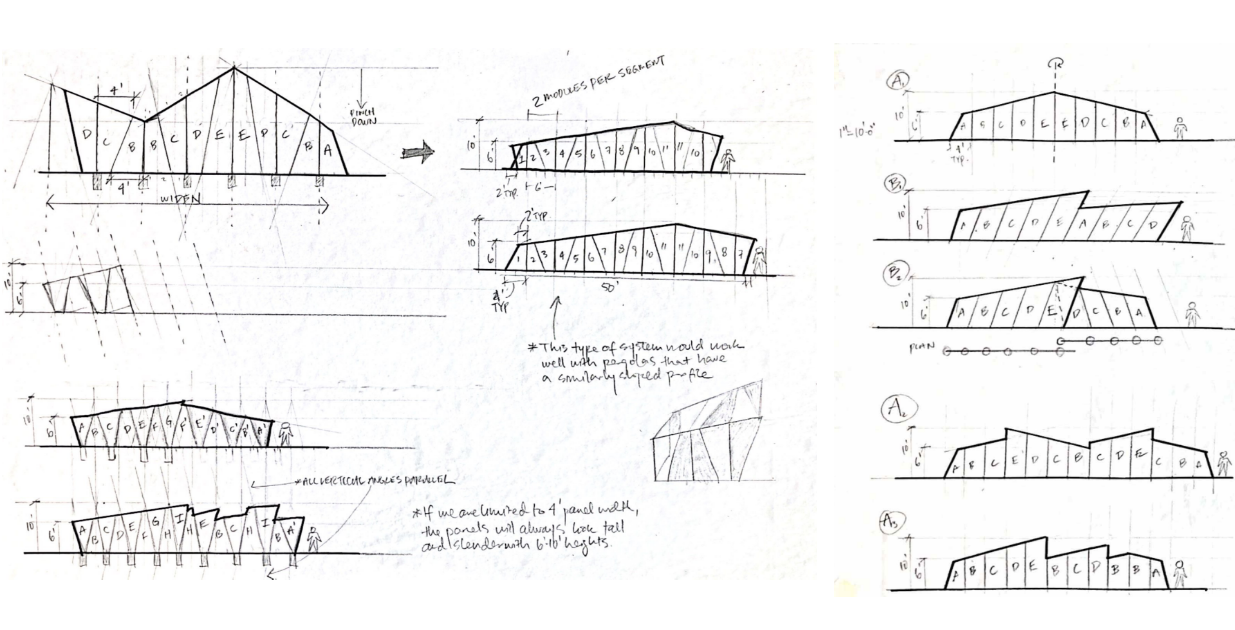 4'
D C B B C D E E D C B A
4'
WIDEN
PINCH
DOWN
10'
6'
10'
6'
A B C D E F G F' E' D' C' B' A'
* ALL VERTICAL ANGLES PARALLEL
10'
6'
A B C D E F G H I H E B C H I B A'
* If we are limited to 4' panel width,
the panels will always look tall
and slender with 6'-10' heights.
2 MODULES PER SEGMENT
10'
6'
1 2 3 4 5 6 7 8 9 10 11 11 10
2' TYP.
6'
2' TYP
10'
6'
1 2 3 4 5 6 7 8 9 10 11 11 10 9 8 7
4'
TYP
50'
1'
* This type of system would work
well with pergolas that have
a similarly sloped profile
A1
1"=10'-0"
10'
6'
A B C D E E D C B A
4'
TYP.
B1
10'
6'
A B C D E A B C D
B2
10'
6'
A B C D E D C B A
PLAN
A2
10'
6'
A B C E D C B C D E C B A
A3
10'
6'
A B C D E B C D B B A